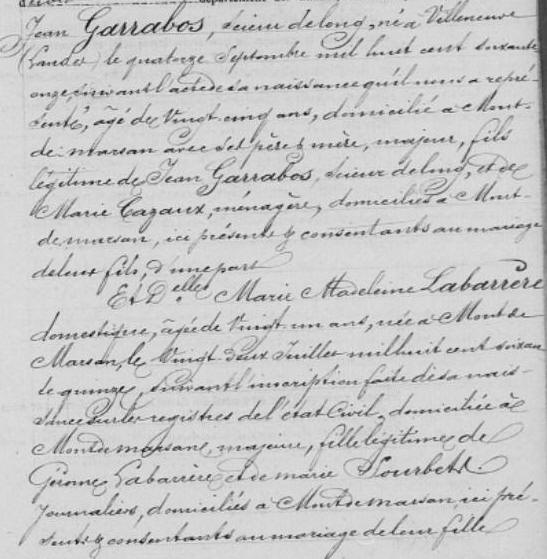 Jean Garrabos, scieur de long, né à Villeneuve
(Landes) le quatorze Septembre mil huit cent soixante
onze, suivant l'acte de sa naissance qu'il nous a repré-
senté, âgé de Vingt-cinq ans, domicilié à Mont-
de-marsan avec ses père & mère, majeur, fils
légitime de Jean Garrabos, scieur de long, et de
Marie Cazaux, ménagère, domiciliés à Mont-
de marsan, ici présents & consentants au mariage
de leur fils, d'une part
Et D.elle Marie Madeleine Labarrère
domestique, âgée de Vingt un ans, née à Mont de
Marsan, le Vingt deux Juillet mil huit cent soixan
te quinze, suivant l'inscription faite de sa nais-
sance sur les registres de l'état Civil, domiciliée à
Mont de marsan, majeure, fille légitime de
Labarrère et de marie Sourbets.
journaliers, domiciliés à Mont de marsan, ici pré-
sents & consentants au mariage de leur fille